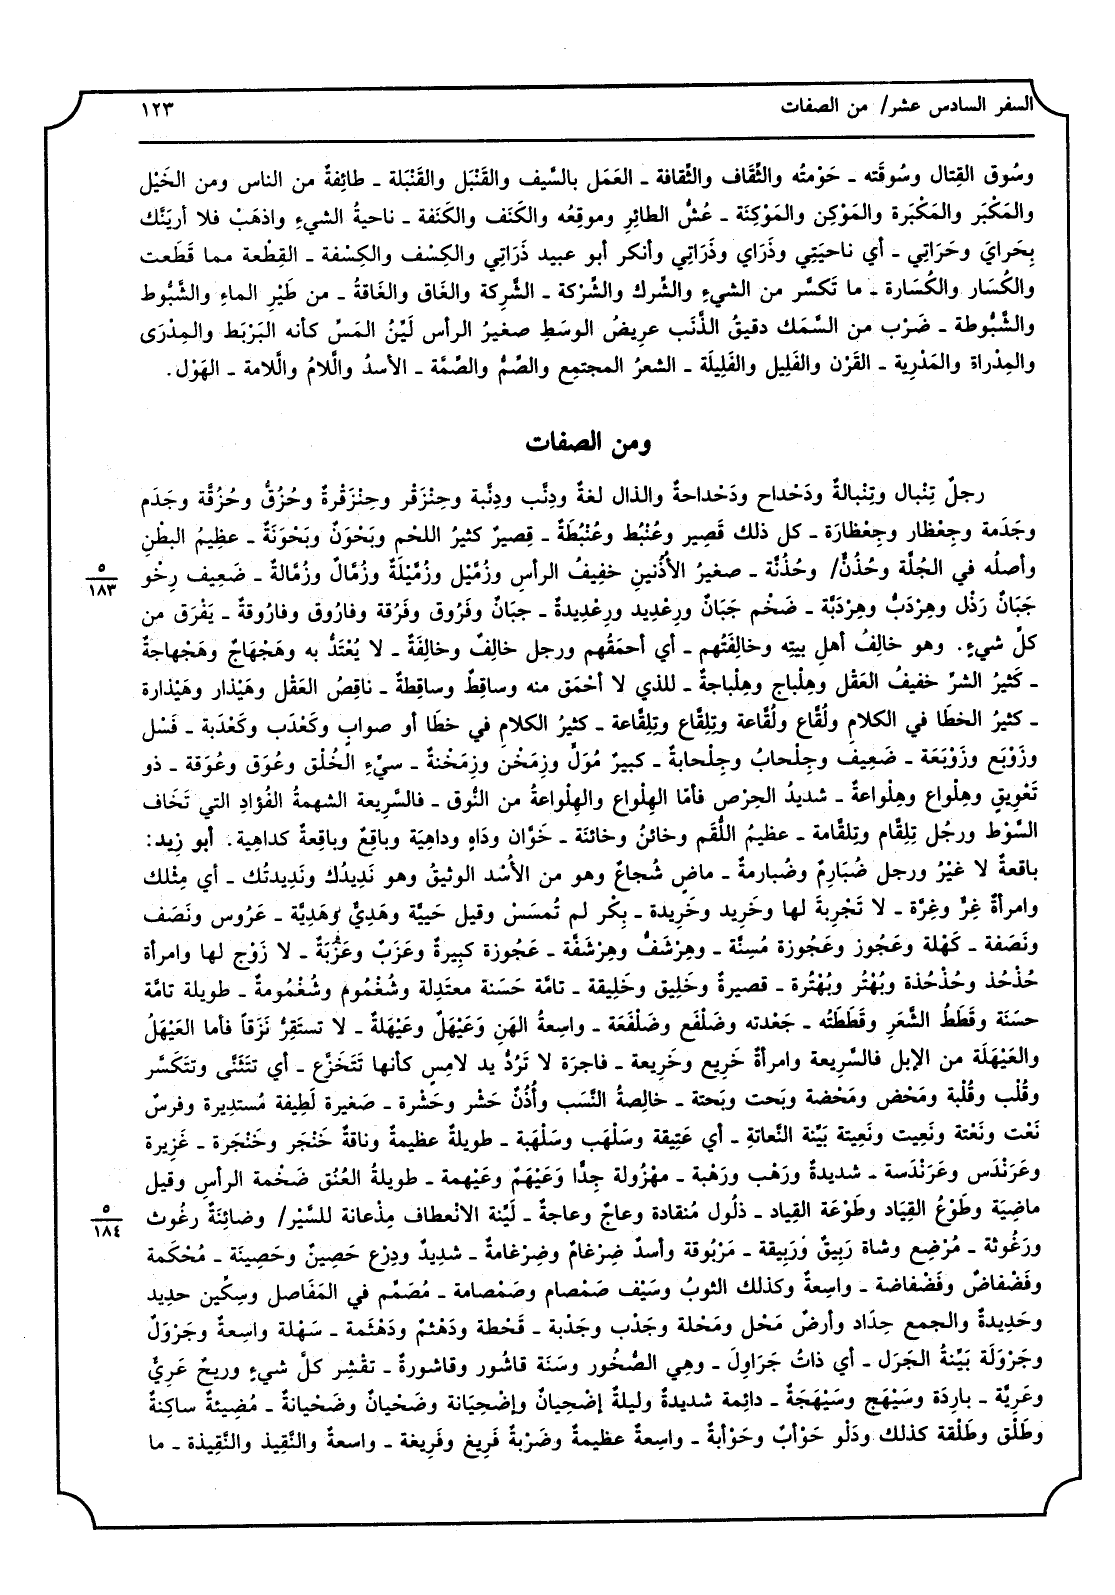 السفر السادس عشر/ من الصفات
١٢٣
وسُوق القِتال وسُوقَته ـ حَوْمتُه والثِّقاف والثِّقافة ـ العَمَل بالسَّيف والقَنْبَل والقَنْبَلة ـ طائِفةٌ من الناس ومن الخَيْل
والمَكْبَر والمَكْبَرة والمَوْكِن والمَوْكِنَة ـ عُشُّ الطائِرِ وموقِعُه والكَنَف والكَنَفة ـ ناحيةُ الشيءِ واذهَبْ فلا أريَنَّك
بِحَرايَ وحَرَاتِي ـ أي ناحيَتِي وذَرَاي وذَرَاتِي وأنكر أبو عبيد ذَرَاتِي والكِسْف والكِسْفة ـ القِطْعة مما قَطَعت
والكُسَار والكُسَارة ـ ما تَكسَّر من الشيءِ والشِّرك والشِّرْكة ـ الشَّرِكة والغَاق والغَاقةُ ـ من طَيْرِ الماءِ والشَّبُّوط
والشَّبُّوطة ـ ضَرْب من السَّمَك دقيقُ الذَّنَب عريضُ الوسَطِ صغيرُ الرأس لَيِّنُ المَسِّ كأنه البَرْبَط والمِدْرَى
والمِدْراة والمَدْرِية ـ القَرْن والفَلِيل والفَلِيلَة ـ الشعرُ المجتمِع والصِّمُّ والصِّمَّة ـ الأسدُ واللَّامُ واللَّامة ـ الهَوْل.
ومن الصفات
رجلٌ تِنْبال وتِنْبالةٌ ودَحْداح ودَحْداحةٌ والذال لغةٌ ودِنَّب ودِنَّبة وحِنْزَقْر وحِنْزَقْرةٌ وحُزُقٌّ وحُزُقَّة وجَدَم
وجَدَمة وجِعْظار وجِعْظارَة ـ كل ذلك قَصِير وعُنْبُط وعُنْبُطَةٌ ـ قصِيرٌ كثيرُ اللحْم وبَحْوَنٌ وبَحْوَنَةٌ ـ عظِيمُ البطْنِ
وأصلُه في الجُلَّة وحُذُنٌّ/ وحُذُنَّة ـ صغيرُ الأذُنينِ خفِيفُ الرأسِ وزُمَّيْل وزُمَّيْلَةٌ وزُمَّالٌ وزُمَّالةٌ ـ ضَعِيف رِخْو
٥
١٨٣
جَبَانٌ رَذْل وهِرْدَبٌّ وهِرْدَبَّة ـ ضَخْم جَبَانٌ ورِعْدِيد ورِعْدِيدةٌ ـ جبَانٌ وفَرُوق وفَرُقة وفارُوق وفارُوقةٌ ـ يَفْرَق من
كلِّ شيءٍ. وهو خالِفُ أهلِ بيتِه وخالِفَتُهم ـ أي أحمَقُهم ورجل خالِفٌ وخالِفَةٌ ـ لا يُعْتَدُّ به وهَجْهَاجٌ وهَجْهاجةٌ
ـ كَثيرُ الشرِّ خفيفُ العَقْل وهِلْباج وهِلْباجةٌ ـ للذي لا أحْمَق منه وساقِطٌ وساقِطةٌ ـ ناقِصُ العَقْل وهَيْذار وهَيْذارة
ـ كثيرُ الخطَا في الكلامِ ولُقَّاع ولُقَّاعة وتِلِقَّاع وتِلِقَّاعة ـ كثيرُ الكلامِ في خطَا أو صوابٍ وكَعْدَب وكَعْدَبة ـ فَسْل
وزَوْبَع وزَوْبَعَة ـ ضَعِيف وجِلْحابُ وجِلْحابةٌ ـ كبيرٌ مُوَلٍّ وزِمَخْن وزِمَخْنةٌ ـ سيِّءِ الخُلْق وعُوَق وعُوَقة ـ ذو
تَعْوِيقٍ وهِلْواع وهِلْواعةٌ ـ شديدُ الحِرْص فأمَّا الهِلْواع والهِلْواعةُ من النُّوق ـ فالسَّرِيعة الشهمةُ الفُؤادِ التي تَخَاف
السَّوْط ورجُل تِلِقَّام وتِلِقَّامة ـ عظيمُ اللُّقَم وخائنُ وخائنَة ـ خَوَّان ودَاهٍ وداهِيَة وباقِعٌ وباقِعةٌ كداهِية. أبو زيد:
باقعةٌ لا غيْرُ ورجل ضُبَارِمٌ وضُبارمةٌ ـ ماضٍ شُجاعٌ وهو من الأُسْد الوثيقُ وهو نَدِيدُك ونَدِيدتُك ـ أي مِثْلك
وامرأةٌ غِرٌّ وغِرَّة ـ لا تَجْرِبةَ لها وخَرِيد وخَرِيدة ـ بِكْر لم تُمسَسْ وقيل حَيِيَّة وهَدِيٌّ وهَدِيَّة ـ عَرُوس ونَصَف
ونَصَفة ـ كَهْلة وعَجُوز وعَجُوزة مُسِنَّة ـ وهِرْشَفٌّ وهِرْشَفَّة ـ عَجُوزة كبِيرةٌ وعَزَبٌ وعَزَبَةٌ ـ لا زَوْج لها وامرأة
حُذْحُذ وحُذْحُذة وبُهْتُر وبُهْتُرة ـ قصيرةٌ وخَلِيق وخَلِيقة ـ تامَّة حَسَنة معتَدِلة وشُغْمُوم وشُغْمُومةٌ ـ طويلة تامَّة
حسَنة وقَطَطُ الشَّعَر وقَطَطَتُه ـ جَعْدته وضَلْفَع وضَلْفَعَة ـ واسِعةُ الهَنِ وَعَيْهَلٌ وعَيْهَلةٌ ـ لا تستَقِرُّ نَزَقاً فأما العَيْهَلُ
والعَيْهَلَة من الإبل فالسَّرِيعة وامرأةٌ خَرِيع وخَرِيعة ـ فاجرَة لا تَرُدُّ يد لامِسٍ كأنها تَتَخَزَّع ـ أي تتَثَنَّى وتتَكَسَّر
وقُلْب وقُلْبة ومَحْض ومَحْضة وبَحت وبَحتة ـ خالِصةُ النَّسَب وأُذُنٌ حَشْر وحَشْرة ـ صَغيرة لَطِيفة مُستدِيرة وفرسٌ
نَعْت ونَعْتة ونَعِيت ونَعِيتة بَيِّنة النَّعاتةِ ـ أي عَتِيقة وسَلْهَب وسَلْهَبة ـ طويلةٌ عظيمةٌ وناقةٌ خَنْجَر وخَنْجَرة ـ غَزِيرة
وعَرَنْدَس وعَرَنْدَسة ـ شديدةٌ ورَهْب ورَهْبة ـ مهْزُولة جِدًّا وَعَيْهَمٌ وعَيْهمة ـ طويلةُ العُنُق ضَخْمة الرأسِ وقيل
ماضِيَة وطَوْعُ القِيَاد وطَوْعَة القِيَاد ـ ذلُول مُنقادة وعاجٌ وعاجة ـ لَيِّنة الانْعطاف مِذْعانة للسَّيْر/ وضائِنَةٌ رغُوث
٥
١٨٤
ورَغُوثة ـ مُرْضِع وشاة رَبِيقٌ وَرَبِيقة ـ مَرْبُوقة وأسدٌ ضِرْغامٌ وضِرْغامةٌ ـ شديدٌ ودِرْع حَصِينٌ وحَصِينَة ـ مُحْكَمة
وفَضْفاضٌ وفَضْفاضة ـ واسِعةٌ وكذلك الثوبُ وسَيْف صَمْصام وصَمْصامة ـ مُصَمِّم في المَفَاصل وسِكِّين حديد
وحَدِيدةٌ والجمع حِدَاد وأرضٌ مَحْل ومَحْلة وجَدْب وجَدْبة ـ قَحْطة ودَهْثمٌ ودَهْثَمة ـ سَهْلة واسِعةٌ وجَرْوَلٌ
وجَرْولَة بَيِّنةُ الجَرَل ـ أي ذاتُ جَرَاوِلَ ـ وهِي الصُّخُور وسَنَة قاشُور وقاشورةٌ ـ تقْشِر كلَّ شيءٍ وريحٌ عَرِيٌّ
وعَرِيَّة ـ بارِدَة وسَيْهَج وسَيْهَجَةٌ ـ دائِمة شديدةٌ وليلةٌ إضْحِيانٌ وإضْحِيَانة وضَحْيانٌ وضَحْيانةٌ ـ مُضِيئةٌ ساكِنةٌ
وطَلْق وطَلْقة كذلك ودَلْو حَوْأبٌ وحَوْأبةٌ ـ واسِعةٌ عظيمةٌ وضَرْبةٌ فَرِيغ وفَرِيغة ـ واسعةٌ والنَّقِيذ والنَّقِيذة ـ ما